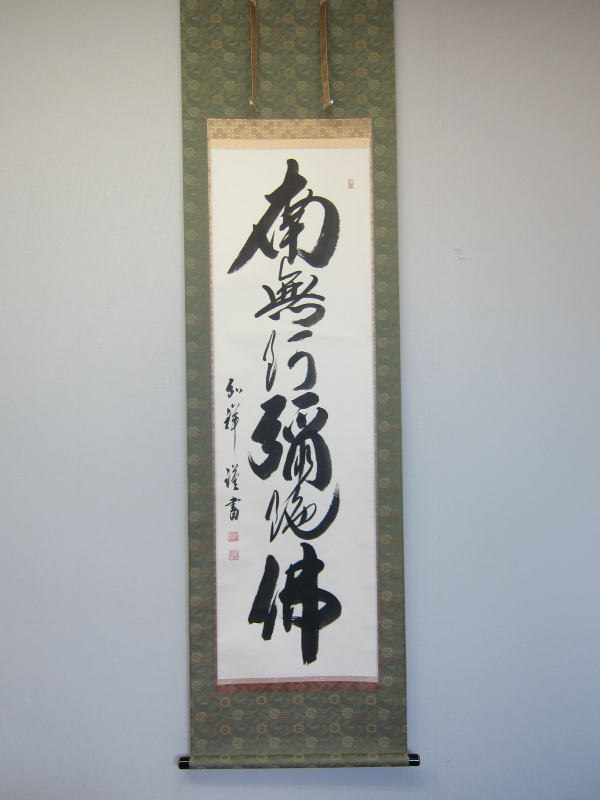 南無阿彌陀佛
弘祥謹書